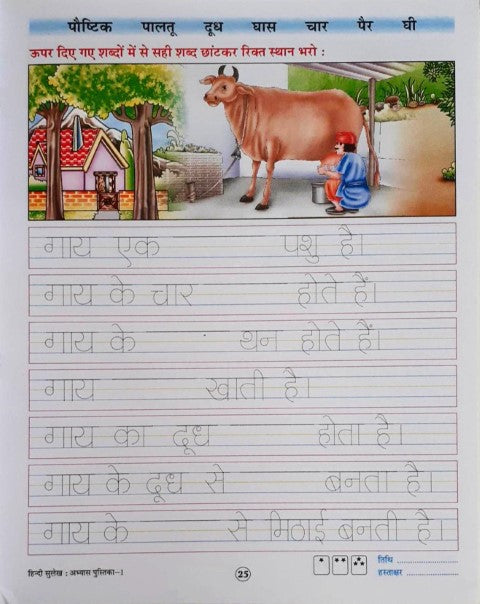 पौष्टिक पालतू दूध घास चार पैर घी
ऊपर दिए गए शब्दों में से सही शब्द छांटकर रिक्त स्थान भरो :
गाय एक पशु है।
गाय के चार होते हैं।
गाय के थन होते हैं।
गाय खाती है।
गाय का दूध होता है।
गाय के दूध से बनता है।
गाय के से मिठाई बनती है।
तिथि ....................
हिन्दी सुलेख : अभ्यास पुस्तिका-1 25 हस्ताक्षर ....................